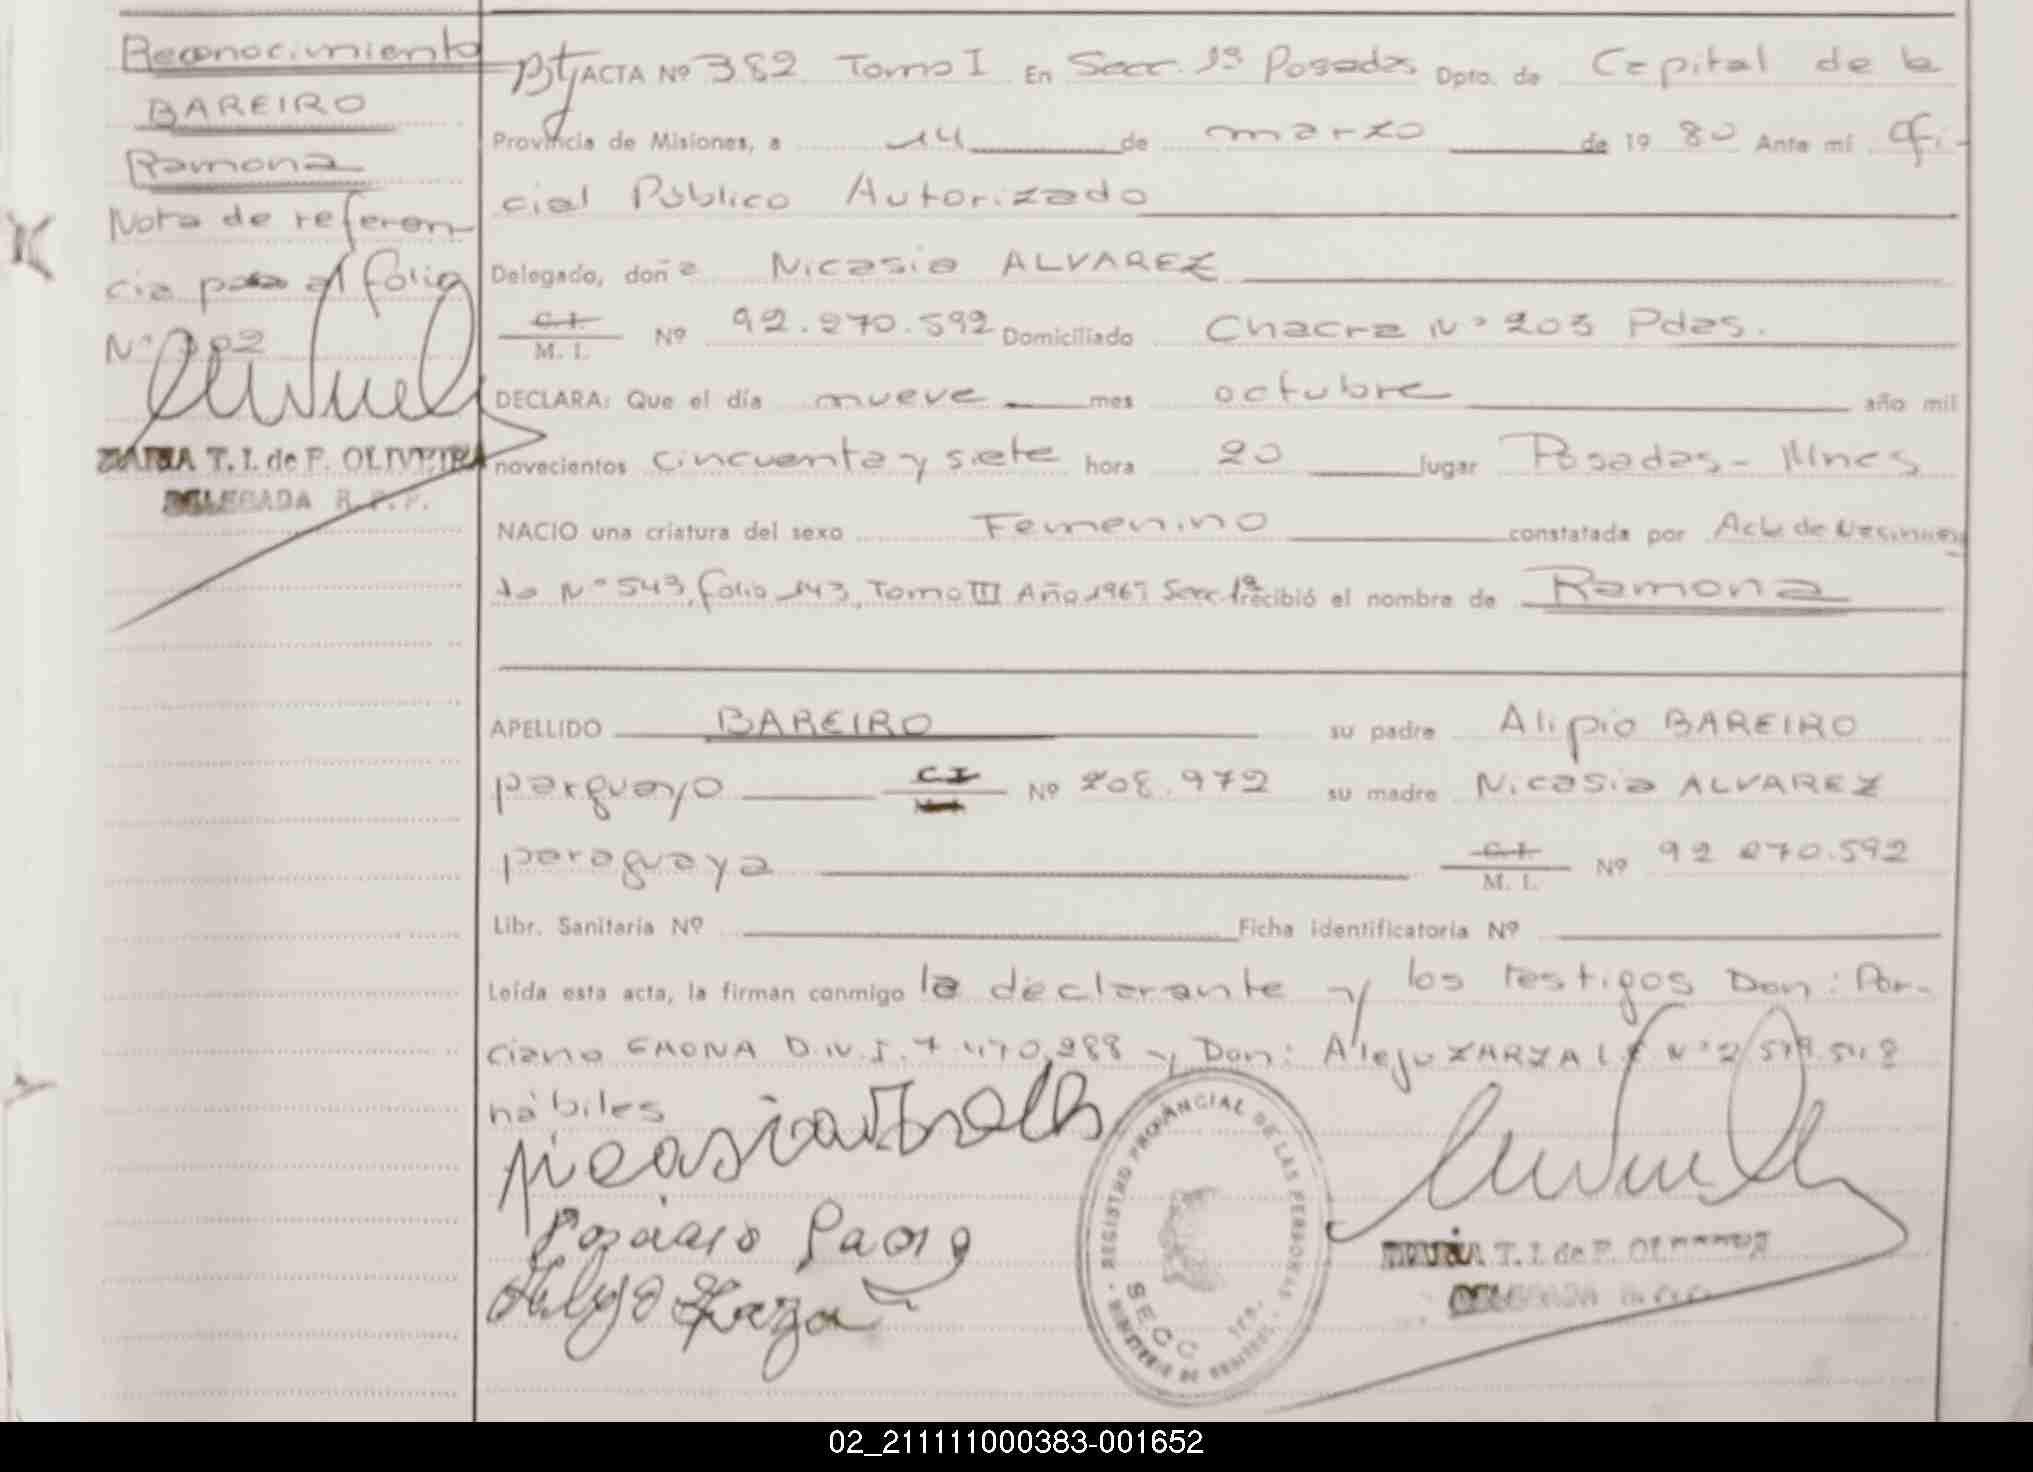 Reconocimiento
BAREIRO
Ramona
Nota de referen
cia pasa al folio
Nº 302
MARIA T. I. de F. OLIVEIRA
DELEGADA R.P.P.
ACTA Nº 382 Tomo I En Secc. 1ª Posadas Dpto. de Capital de la
Provincia de Misiones, a 14 de marzo de 19 80 Ante mí Ofi-
cial Público Autorizado
Delegado, doña Nicasia ALVAREZ
C.I. M. I. Nº 92.270.592 Domiciliado Chacra Nº 203 Pdas.
DECLARA: Que el día nueve mes octubre año mil
novecientos cincuenta y siete hora 20 lugar Posadas - Mnes
NACIO una criatura del sexo Femenino constatada por Acta de Nacimien
to Nº 543, folio 143, Tomo III Año Secc 1ª recibió el nombre de Ramona
APELLIDO BAREIRO su padre Alipio BAREIRO
parguayo CI Nº 208.972 su madre Nicasia ALVAREZ
paraguaya C.I. M. I. Nº 92 270.592
Libr. Sanitaria Nº Ficha identificatoria Nº
Leída esta acta, la firman conmigo la declarante y los testigos Don: Por-
ciano GAONA D.N.I. 7.470.288 y Don: Alejo ZARZA L.E Nº 2.579.518
hábiles
REGISTRO PROVINCIAL DE LAS PERSONAS
SECC 1ra.
MINISTERIO DE
MARIA T. I. de F. OLIVEIRA
DELEGADA
02_211111000383-001652